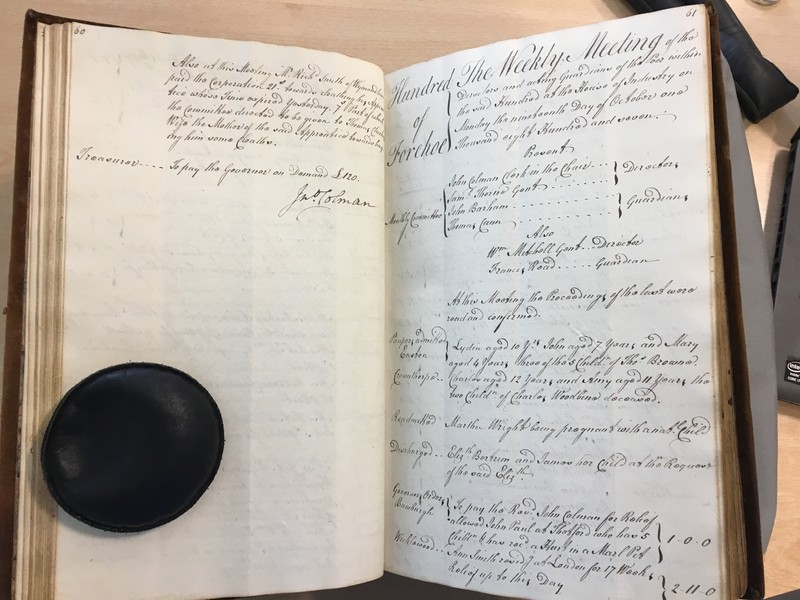 60
Also at this Meeting Mr. Richd. Smith of Wymondham
paid the Corporation 21s. towards cloathing his Appren
tice whose Time expired Yesterday, 7s. Part of which
the Committee directed to be given to Henry
Wife the Mother of the said Apprentice towards buy
ing him some Cloaths.
Treasurer .... To pay the Governor on Demand £120.
Jno. Colman
61
Hundred of Forehoe
The Weekly Meeting of the
Directors and acting Guardians of the Poor within
the said Hundred at the House of Industry on
Monday the nineteenth Day of October one
Thousand eight Hundred and seven.
Present
Monthly Committee
John Colman Clerk in the Chair ...
Saml. Thorne Gent
Directors
John Barham
Thomas Cann
Guardians
Also
Wm. Mitchell Gent .. Director
Francis Read ...... Guardian
At this Meeting the Proceedings of the last were
read and confirmed.
Paupers admitted
Easton
Lydia aged 10 Yrs. John aged 7 Years and Mary
aged 4 Years three of the 5 Childn. of Thos. Browne.
Crownthorpe ..
Charles aged 12 Years and Amy aged 11 Years the
two Childn. of Charles Woodbine deceased.
Readmitted
Martha Wright being pregnant with a natl. Child
Discharged ..
Elizth. Bertram and James her Child at the Request
of the said Elizth.
Governor's Orders
Bawburgh
To pay the Revd. John Colman for Relief
allowed John Paul at Thetford who has 5
Childn. & has recd. a Hurt in a Marl Pit
1-0-0
Wicklewood ..
Ann Smith residg. at London for 17 Weeks
Relief up to this Day
2-11-0